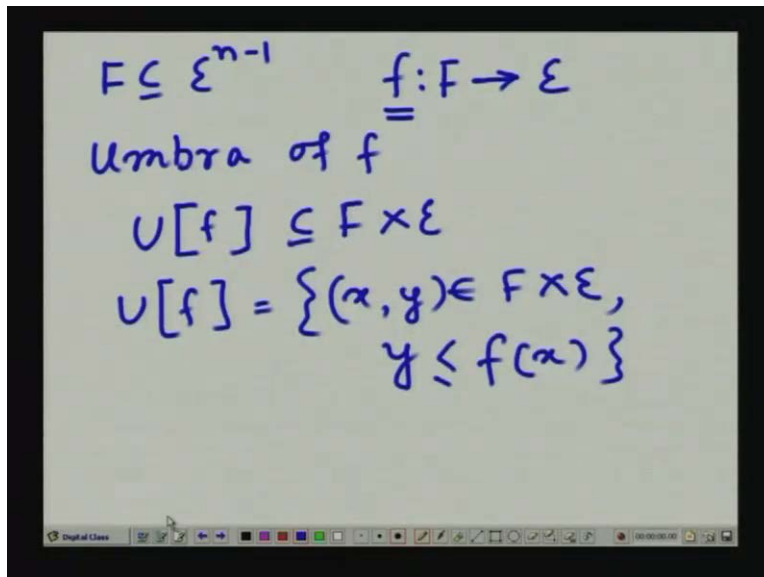 F ⊆ Ɛⁿ⁻¹ f : F → Ɛ
Umbra of f
U[f] ⊆ F × Ɛ
U[f] = {(x, y) ∈ F × Ɛ,
y ≤ f(x)}
Digital Class 00:00:00.00